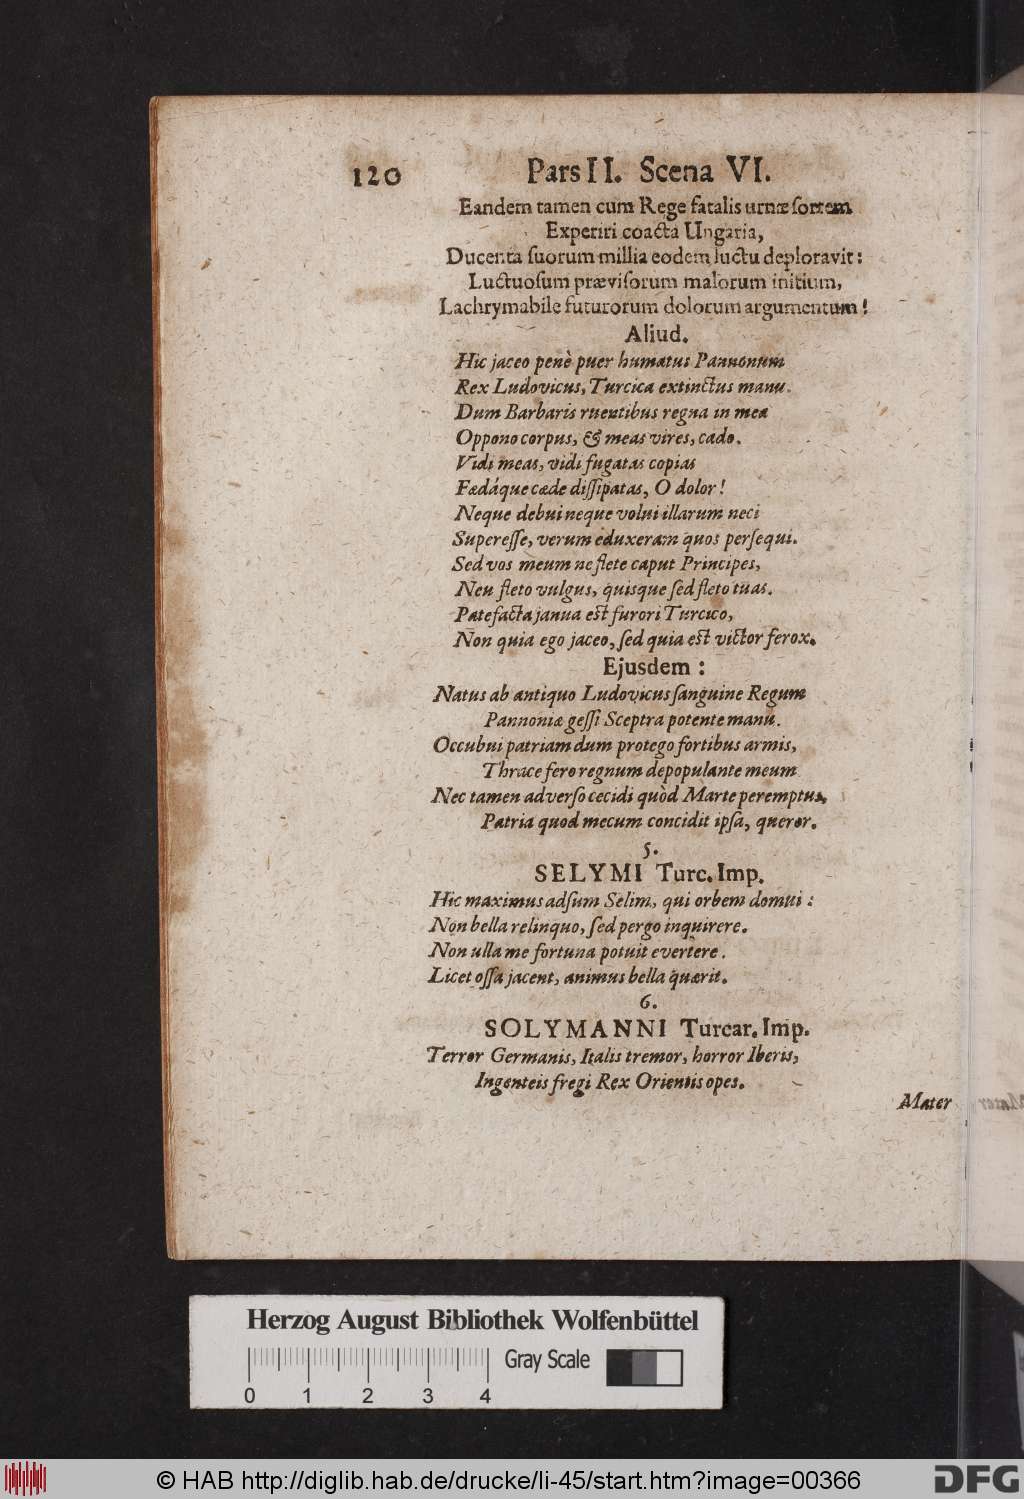 120 Pars II. Scena VI.
Eandem tamen cum Rege fatalis urnæ ſortem
Experiri coacta Ungaria,
Ducenta ſuorum millia eodem luctu deploravit:
Luctuoſum præviſorum malorum initium,
Lachrymabile futurorum dolorum argumentum!
Aliud.
Hic jaceo penè puer humatus Pannonum
Rex Ludovicus, Turcica extinctus manu.
Dum Barbaris ruentibus regna in mea
Oppono corpus, & meas vires, cado.
Vidi meas, vidi fugatas copias
Fædáque cæde diſſipatas, O dolor!
Neque debui neque volui illarum neci
Supereſſe, verum eduxeram quos perſequi.
Sed vos meum ne flete caput Principes,
Neu fleto vulgus, quisque ſed fleto tuas.
Patefacta janua eſt furori Turcico,
Non quia ego jaceo, ſed quia eſt victor ferox.
Ejusdem:
Natus ab antiquo Ludovicus ſanguine Regum
Pannoniæ geſſi Sceptra potente manu.
Occubui patriam dum protego fortibus armis,
Thrace fero regnum depopulante meum.
Nec tamen adverſo cecidi quòd Marte peremptus,
Patria quod mecum concidit ipſa, queror.
5.
SELYMI Turc. Imp.
Hic maximus adſum Selim, qui orbem domui:
Non bella relinquo, ſed pergo inquirere.
Non ulla me fortuna potuit evertere.
Licet oſſa jacent, animus bella quærit.
6.
SOLYMANNI Turcar. Imp.
Terror Germanis, Italis tremor, horror Iberis,
Ingenteis fregi Rex Orientis opes.
Mater
Herzog August Bibliothek Wolfenbüttel
Gray Scale
0 1 2 3 4
© HAB http://diglib.hab.de/drucke/li-45/start.htm?image=00366
DFG